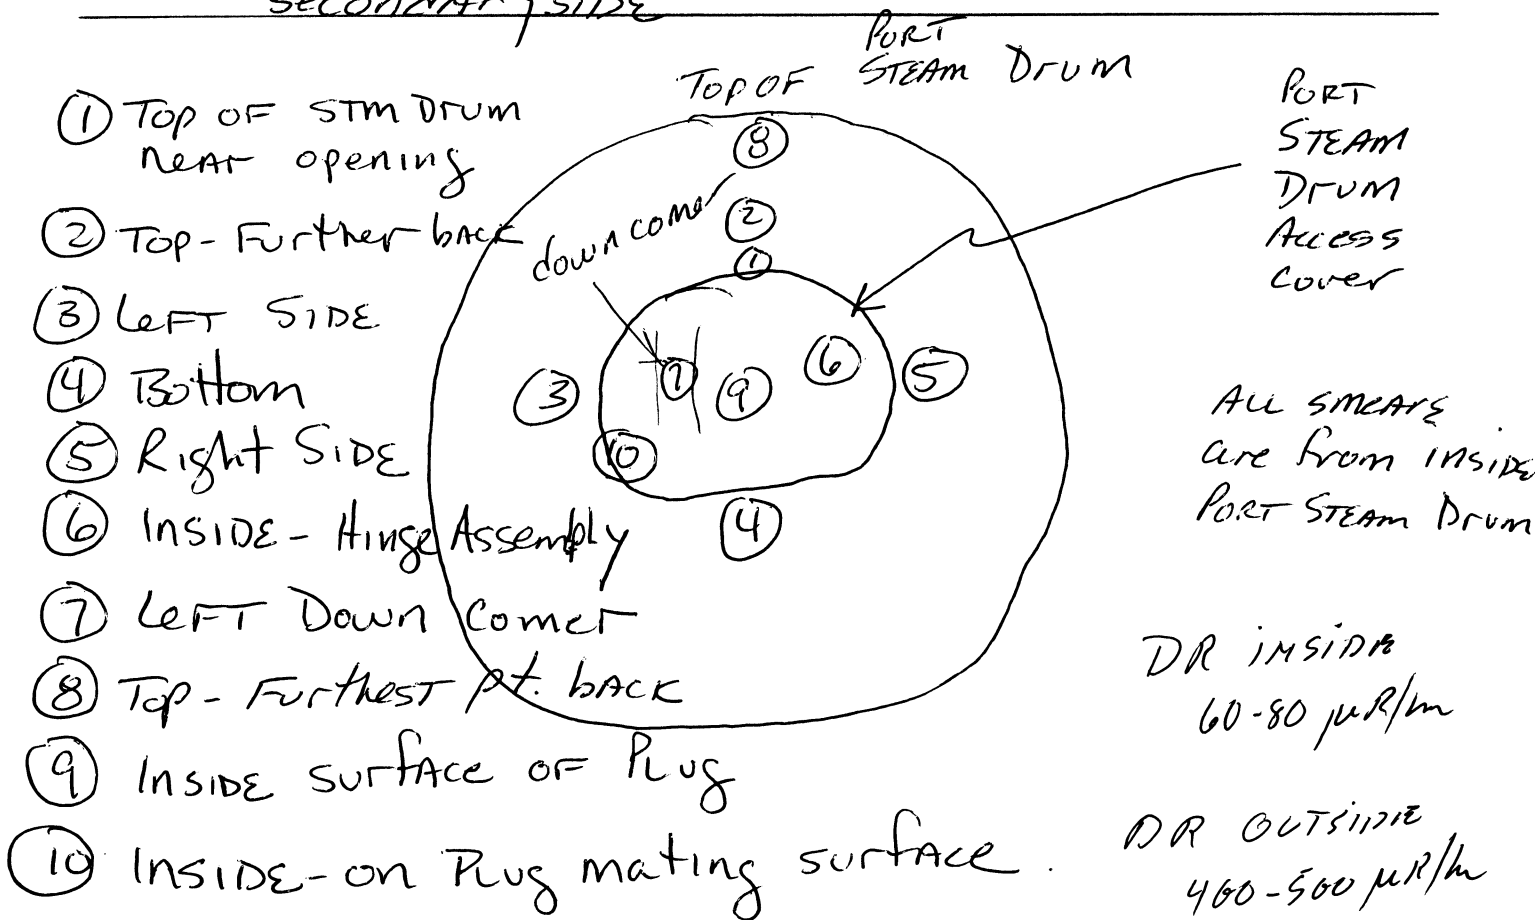 SECONDARY SIDE
① TOP OF STM DRUM
NEAR opening
② TOP - FURTHER BACK
③ LEFT SIDE
④ Bottom
⑤ Right SIDE
⑥ INSIDE - Hinge Assembly
⑦ LEFT Down Comer
⑧ TOP - FURTHEST pt. BACK
⑨ INSIDE SURFACE OF PLUG
⑩ INSIDE - on PLUG mating surface.
TOP OF PORT STEAM DRUM
down comer
⑧
②
①
③
⑦
⑨
⑥
⑤
⑩
④
PORT
STEAM
DRUM
Access
Cover
ALL SMEARS
are from INSIDE
PORT STEAM DRUM
DR INSIDE
60-80 µR/hr
DR OUTSIDE
400-500 µR/hr